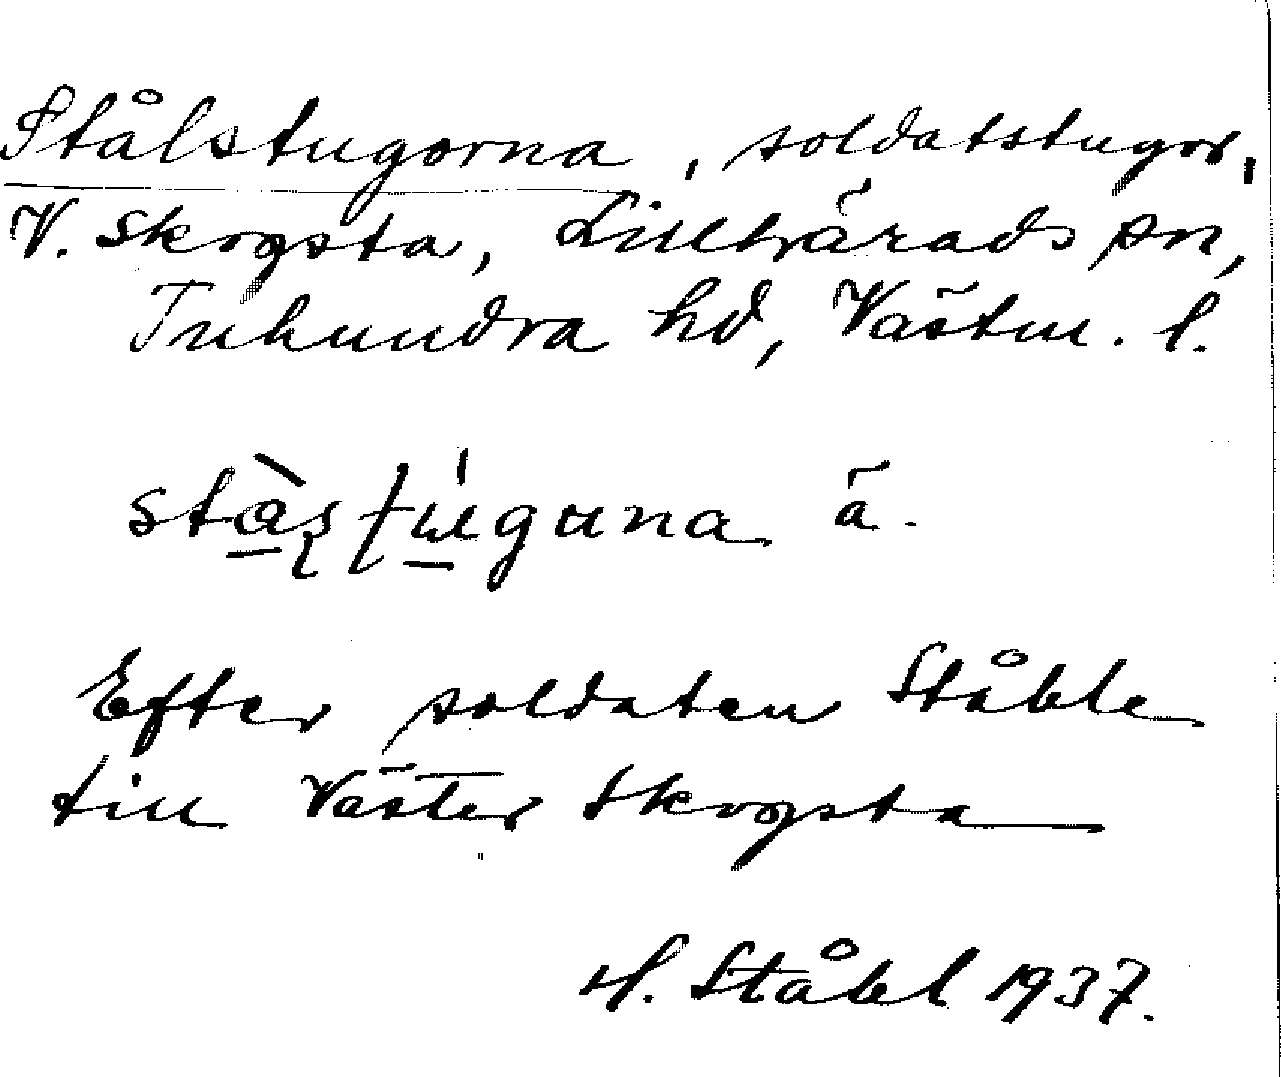 Stålstugorna, soldatstugor,
V. Skogsta, Lillhärads sn,
Tuhundra hd, Västm. l.
ä.
Efter soldaten Ståhle
till Väster Skogsta
H. Ståhl 1937.